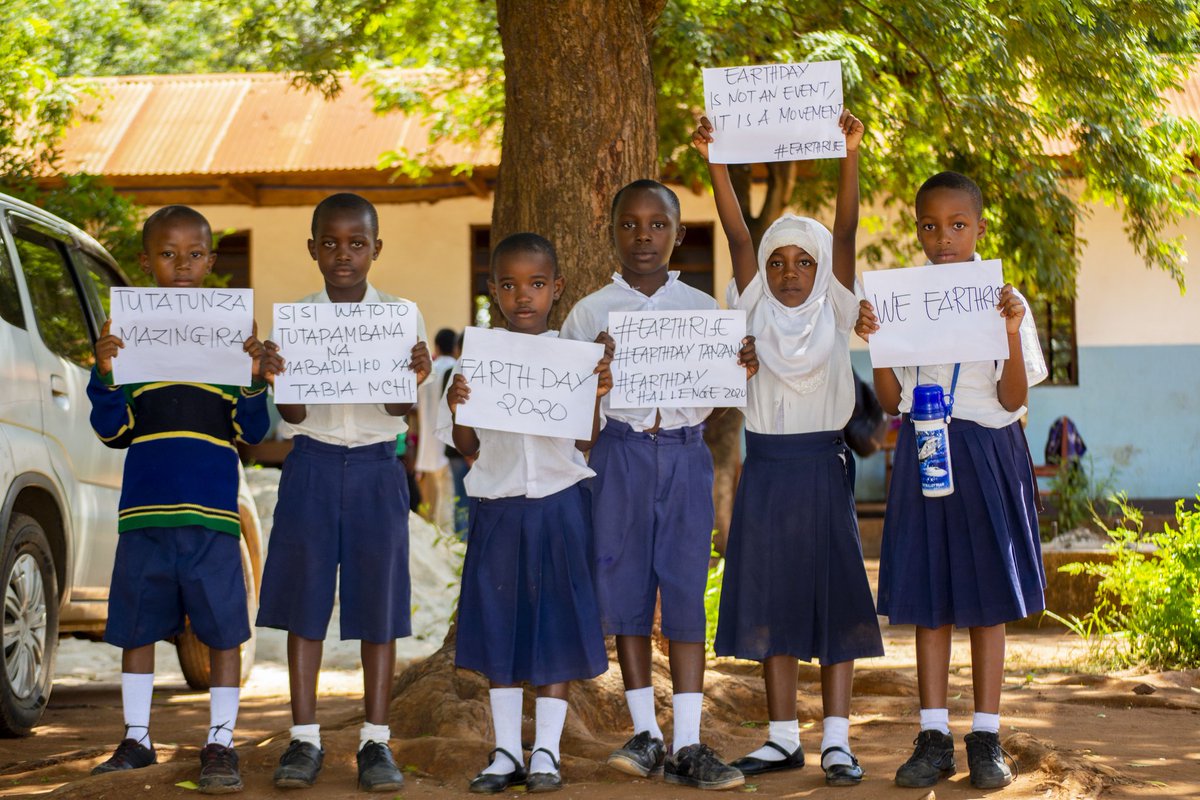 TUTATUNZA
MAZINGIRA
SISI WATOTO
TUTAPAMBANA
NA
MABADILIKO YA
TABIA NCHI
EARTH DAY
2020
#EARTHRISE
#EARTHDAY TANZANI
#EARTHDAY
CHALLENGE 2020
EARTHDAY
IS NOT AN EVENT,
IT IS A MOVEMENT
#EARTHRISE
WE EARTHRISE